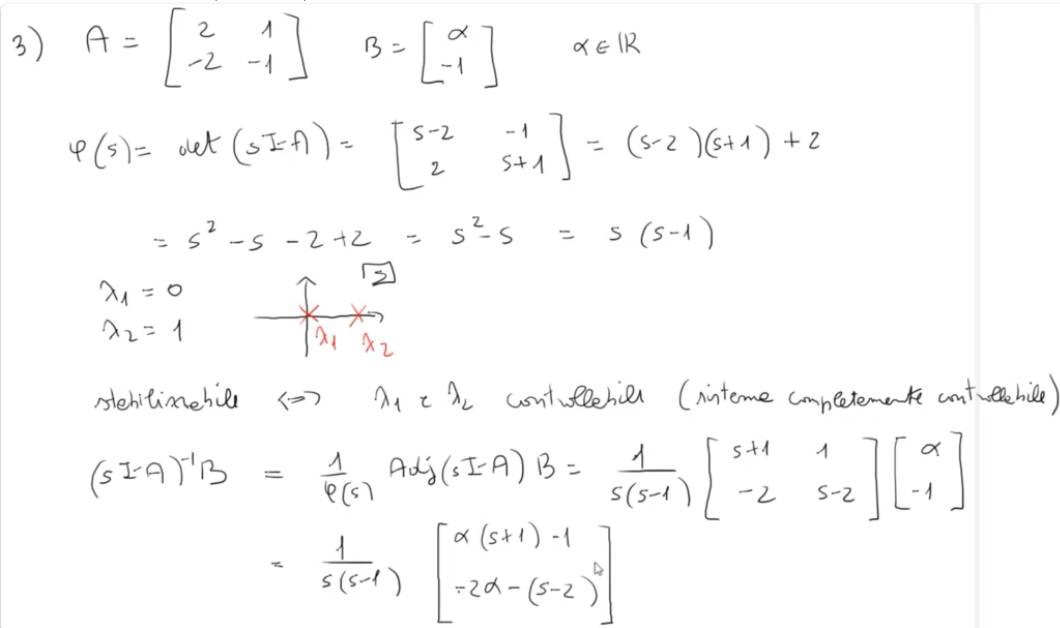 3) A = [2 1; -2 -1] B = [α; -1] α ∈ ℝ
φ(s) = det (sI-A) = [s-2 -1; 2 s+1] = (s-2)(s+1) + 2
= s² - s - 2 + 2 = s² - s = s (s-1)
λ₁ = 0
λ₂ = 1
λ₁ λ₂
stabilizzabile <=> λ₁ e λ₂ controllabili (sistema completamente controllabile)
(sI-A)⁻¹B = 1/φ(s) Adj(sI-A) B = 1/s(s-1) [s+1 1; -2 s-2] [α; -1]
= 1/s(s-1) [α(s+1) - 1; -2α - (s-2)]